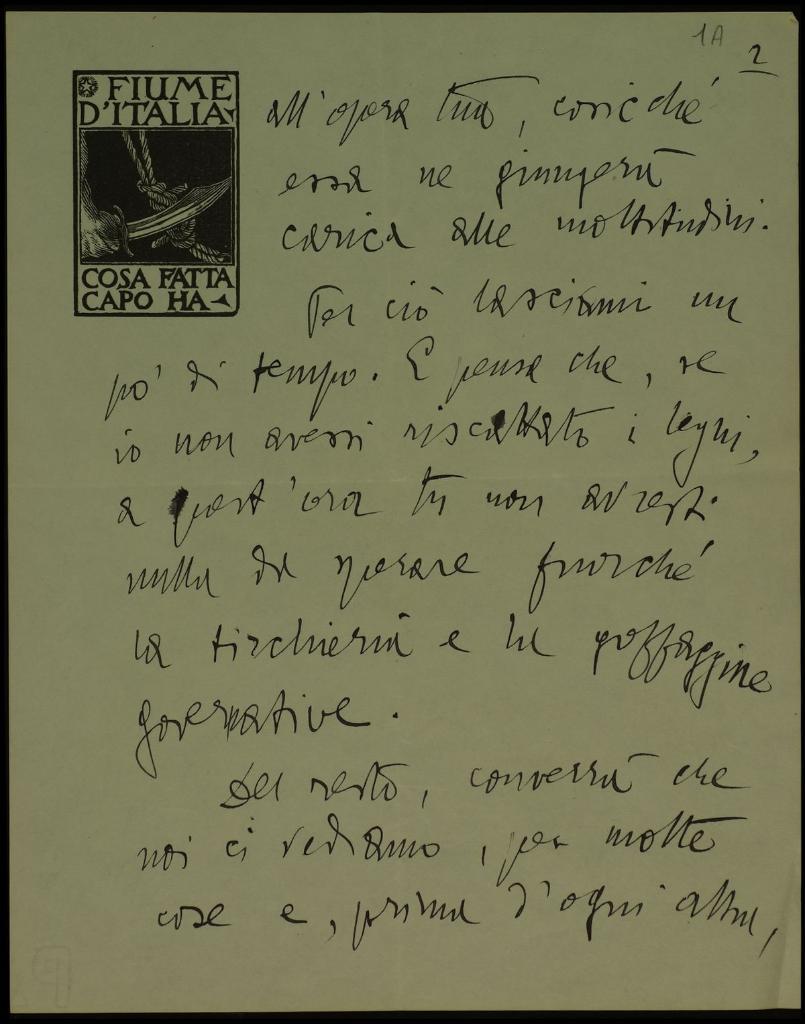 1A
2
FIUME
D'ITALIA
COSA FATTA
CAPO HA
all'opera tua, cosicché
essa ne giungerà
carica alle moltitudini.
Per ciò lasciami un
po' di tempo. E pensa che, se
io non avessi riscattato i legni,
a quest'ora tu non avresti
nulla da sperare fuorché
la tirchieria e la goffaggine
governative.
Del resto, converrà che
noi ci vediamo, per molte
cose e, prima d'ogni altra,